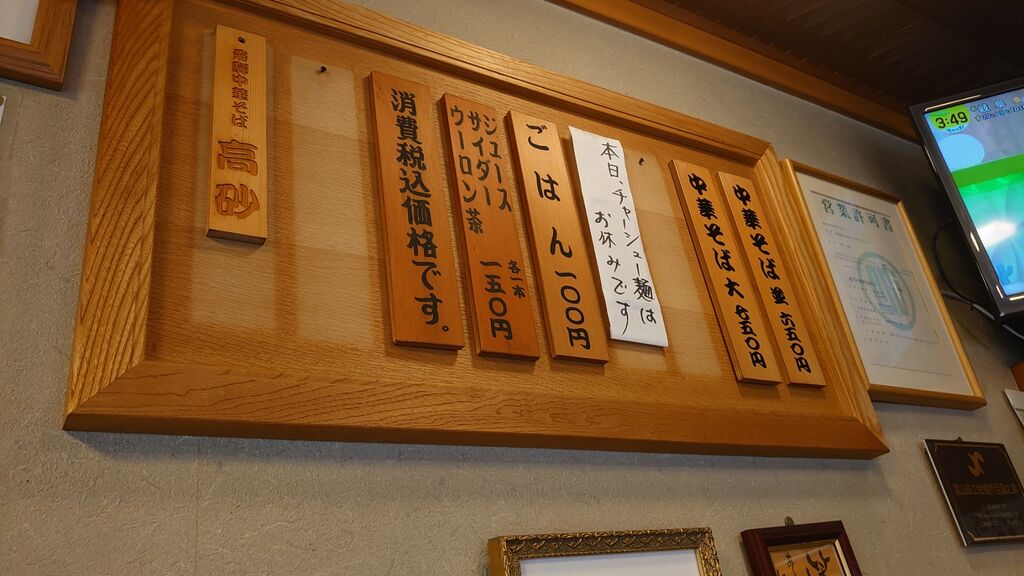 中華そば 並 六五〇円
中華そば 大 七五〇円
本日、チャーシュー麺は
お休みです
ごはん 一〇〇円
ジュース
サイダー
ウーロン茶
各一本
一五〇円
消費税込価格です。
高砂
営業許可書
3:49
岐阜